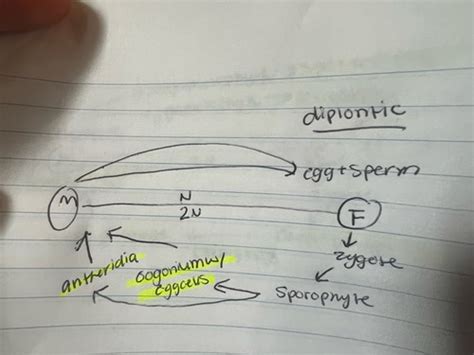 diplontic
egg+sperm
M
N
2N
F
zygote
antheridia
oogonium w/
eggcells
sporophyte